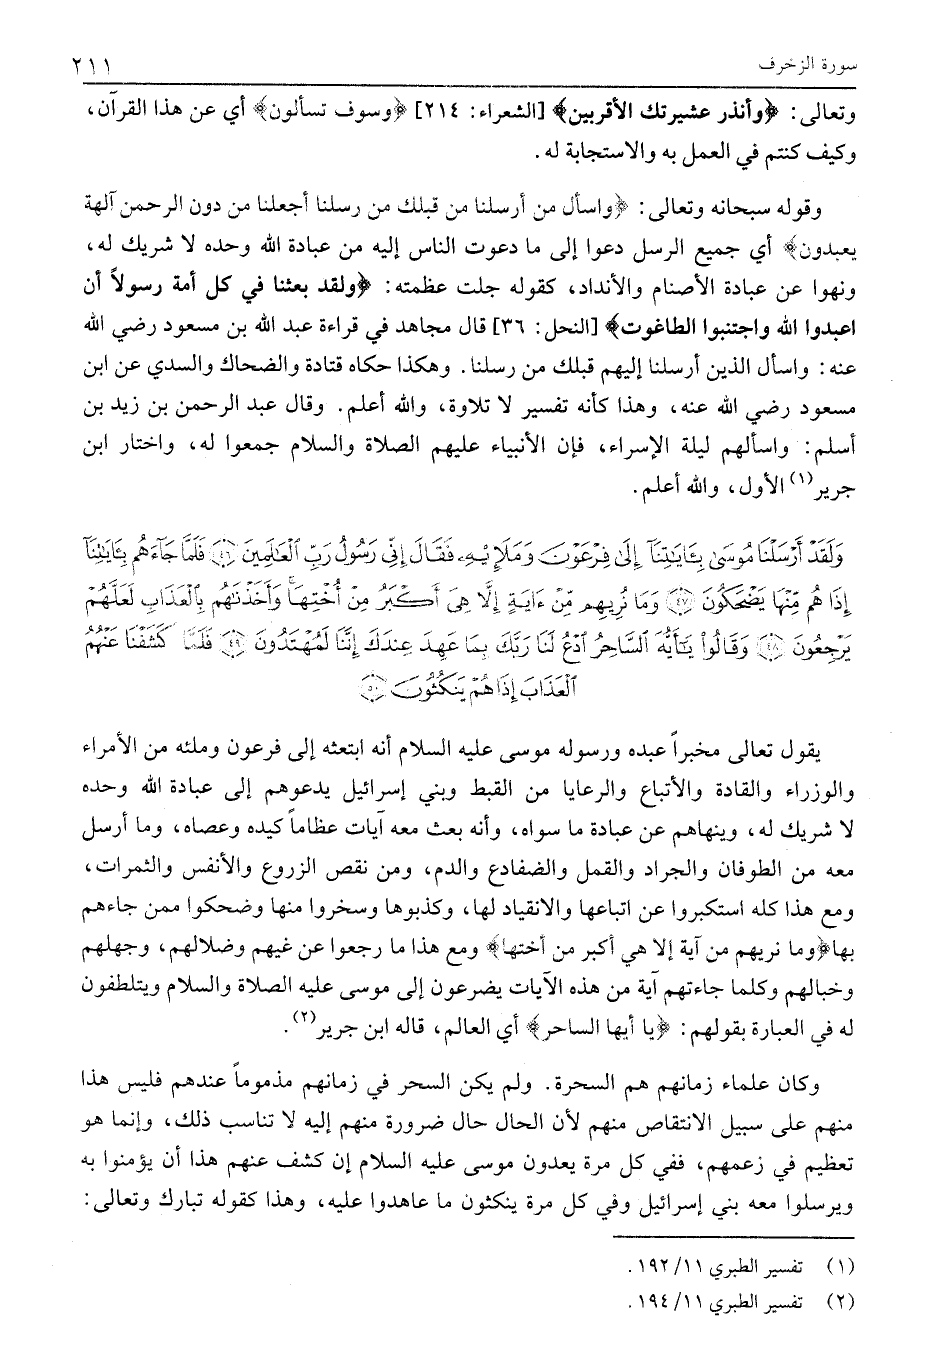 سورة الزخرف
٢١١
وتعالى: ﴿وأنذر عشيرتك الأقربين﴾ [الشعراء: ٢١٤] ﴿وسوف تسألون﴾ أي عن هذا القرآن،
وكيف كنتم في العمل به والاستجابة له.
وقوله سبحانه وتعالى: ﴿واسأل من أرسلنا من قبلك من رسلنا أجعلنا من دون الرحمن آلهة
يعبدون﴾ أي جميع الرسل دعوا إلى ما دعوت الناس إليه من عبادة الله وحده لا شريك له،
ونهوا عن عبادة الأصنام والأنداد، كقوله جلت عظمته: ﴿ولقد بعثنا في كل أمة رسولاً أن
اعبدوا الله واجتنبوا الطاغوت﴾ [النحل: ٣٦] قال مجاهد في قراءة عبد الله بن مسعود رضي الله
عنه: واسأل الذين أرسلنا إليهم قبلك من رسلنا. وهكذا حكاه قتادة والضحاك والسدي عن ابن
مسعود رضي الله عنه، وهذا كأنه تفسير لا تلاوة، والله أعلم. وقال عبد الرحمن بن زيد بن
أسلم: واسألهم ليلة الإسراء، فإن الأنبياء عليهم الصلاة والسلام جمعوا له، واختار ابن
جرير(١) الأول، والله أعلم.
وَلَقَدْ أَرْسَلْنَا مُوسَىٰ بِـَٔايَٰتِنَآ إِلَىٰ فِرْعَوْنَ وَمَلَإِيْهِۦ فَقَالَ إِنِّى رَسُولُ رَبِّ ٱلْعَٰلَمِينَ ﴿٤٦﴾ فَلَمَّا جَآءَهُم بِـَٔايَٰتِنَآ
إِذَا هُم مِّنْهَا يَضْحَكُونَ ﴿٤٧﴾ وَمَا نُرِيهِم مِّنْ ءَايَةٍ إِلَّا هِىَ أَكْبَرُ مِنْ أُخْتِهَا ۖ وَأَخَذْنَٰهُم بِٱلْعَذَابِ لَعَلَّهُمْ
يَرْجِعُونَ ﴿٤٨﴾ وَقَالُوا۟ يَٰٓأَيُّهَ ٱلسَّاحِرُ ٱدْعُ لَنَا رَبَّكَ بِمَا عَهِدَ عِندَكَ إِنَّنَا لَمُهْتَدُونَ ﴿٤٩﴾ فَلَمَّا كَشَفْنَا عَنْهُمُ
ٱلْعَذَابَ إِذَا هُمْ يَنكُثُونَ ﴿٥٠﴾
يقول تعالى مخبراً عبده ورسوله موسى عليه السلام أنه ابتعثه إلى فرعون وملئه من الأمراء
والوزراء والقادة والأتباع والرعايا من القبط وبني إسرائيل يدعوهم إلى عبادة الله وحده
لا شريك له، وينهاهم عن عبادة ما سواه، وأنه بعث معه آيات عظاماً كيده وعصاه، وما أرسل
معه من الطوفان والجراد والقمل والضفادع والدم، ومن نقص الزروع والأنفس والثمرات،
ومع هذا كله استكبروا عن اتباعها والانقياد لها، وكذبوها وسخروا منها وضحكوا ممن جاءهم
بها﴿وما نريهم من آية إلا هي أكبر من أختها﴾ ومع هذا ما رجعوا عن غيهم وضلالهم، وجهلهم
وخبالهم وكلما جاءتهم آية من هذه الآيات يضرعون إلى موسى عليه الصلاة والسلام ويتلطفون
له في العبارة بقولهم: ﴿يا أيها الساحر﴾ أي العالم، قاله ابن جرير(٢).
وكان علماء زمانهم هم السحرة. ولم يكن السحر في زمانهم مذموماً عندهم فليس هذا
منهم على سبيل الانتقاص منهم لأن الحال حال ضرورة منهم إليه لا تناسب ذلك، وإنما هو
تعظيم في زعمهم، ففي كل مرة يعدون موسى عليه السلام إن كشف عنهم هذا أن يؤمنوا به
ويرسلوا معه بني إسرائيل وفي كل مرة ينكثون ما عاهدوا عليه، وهذا كقوله تبارك وتعالى:
(١) تفسير الطبري ١٩٢/١١.
(٢) تفسير الطبري ١٩٤/١١.